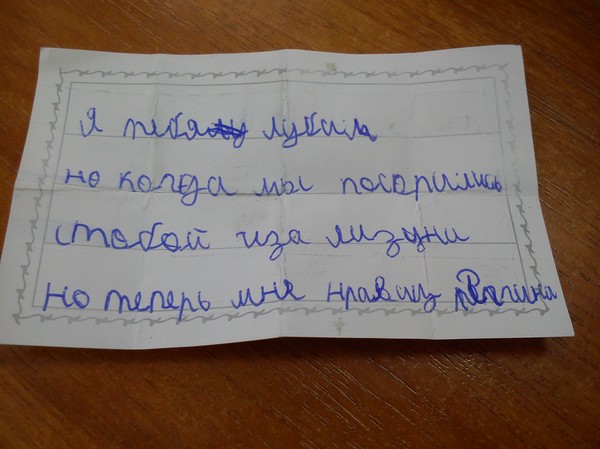 Я тебя лубил
но когда мы посорились
стобой иза лизуни
но теперь мне нравиц Регина